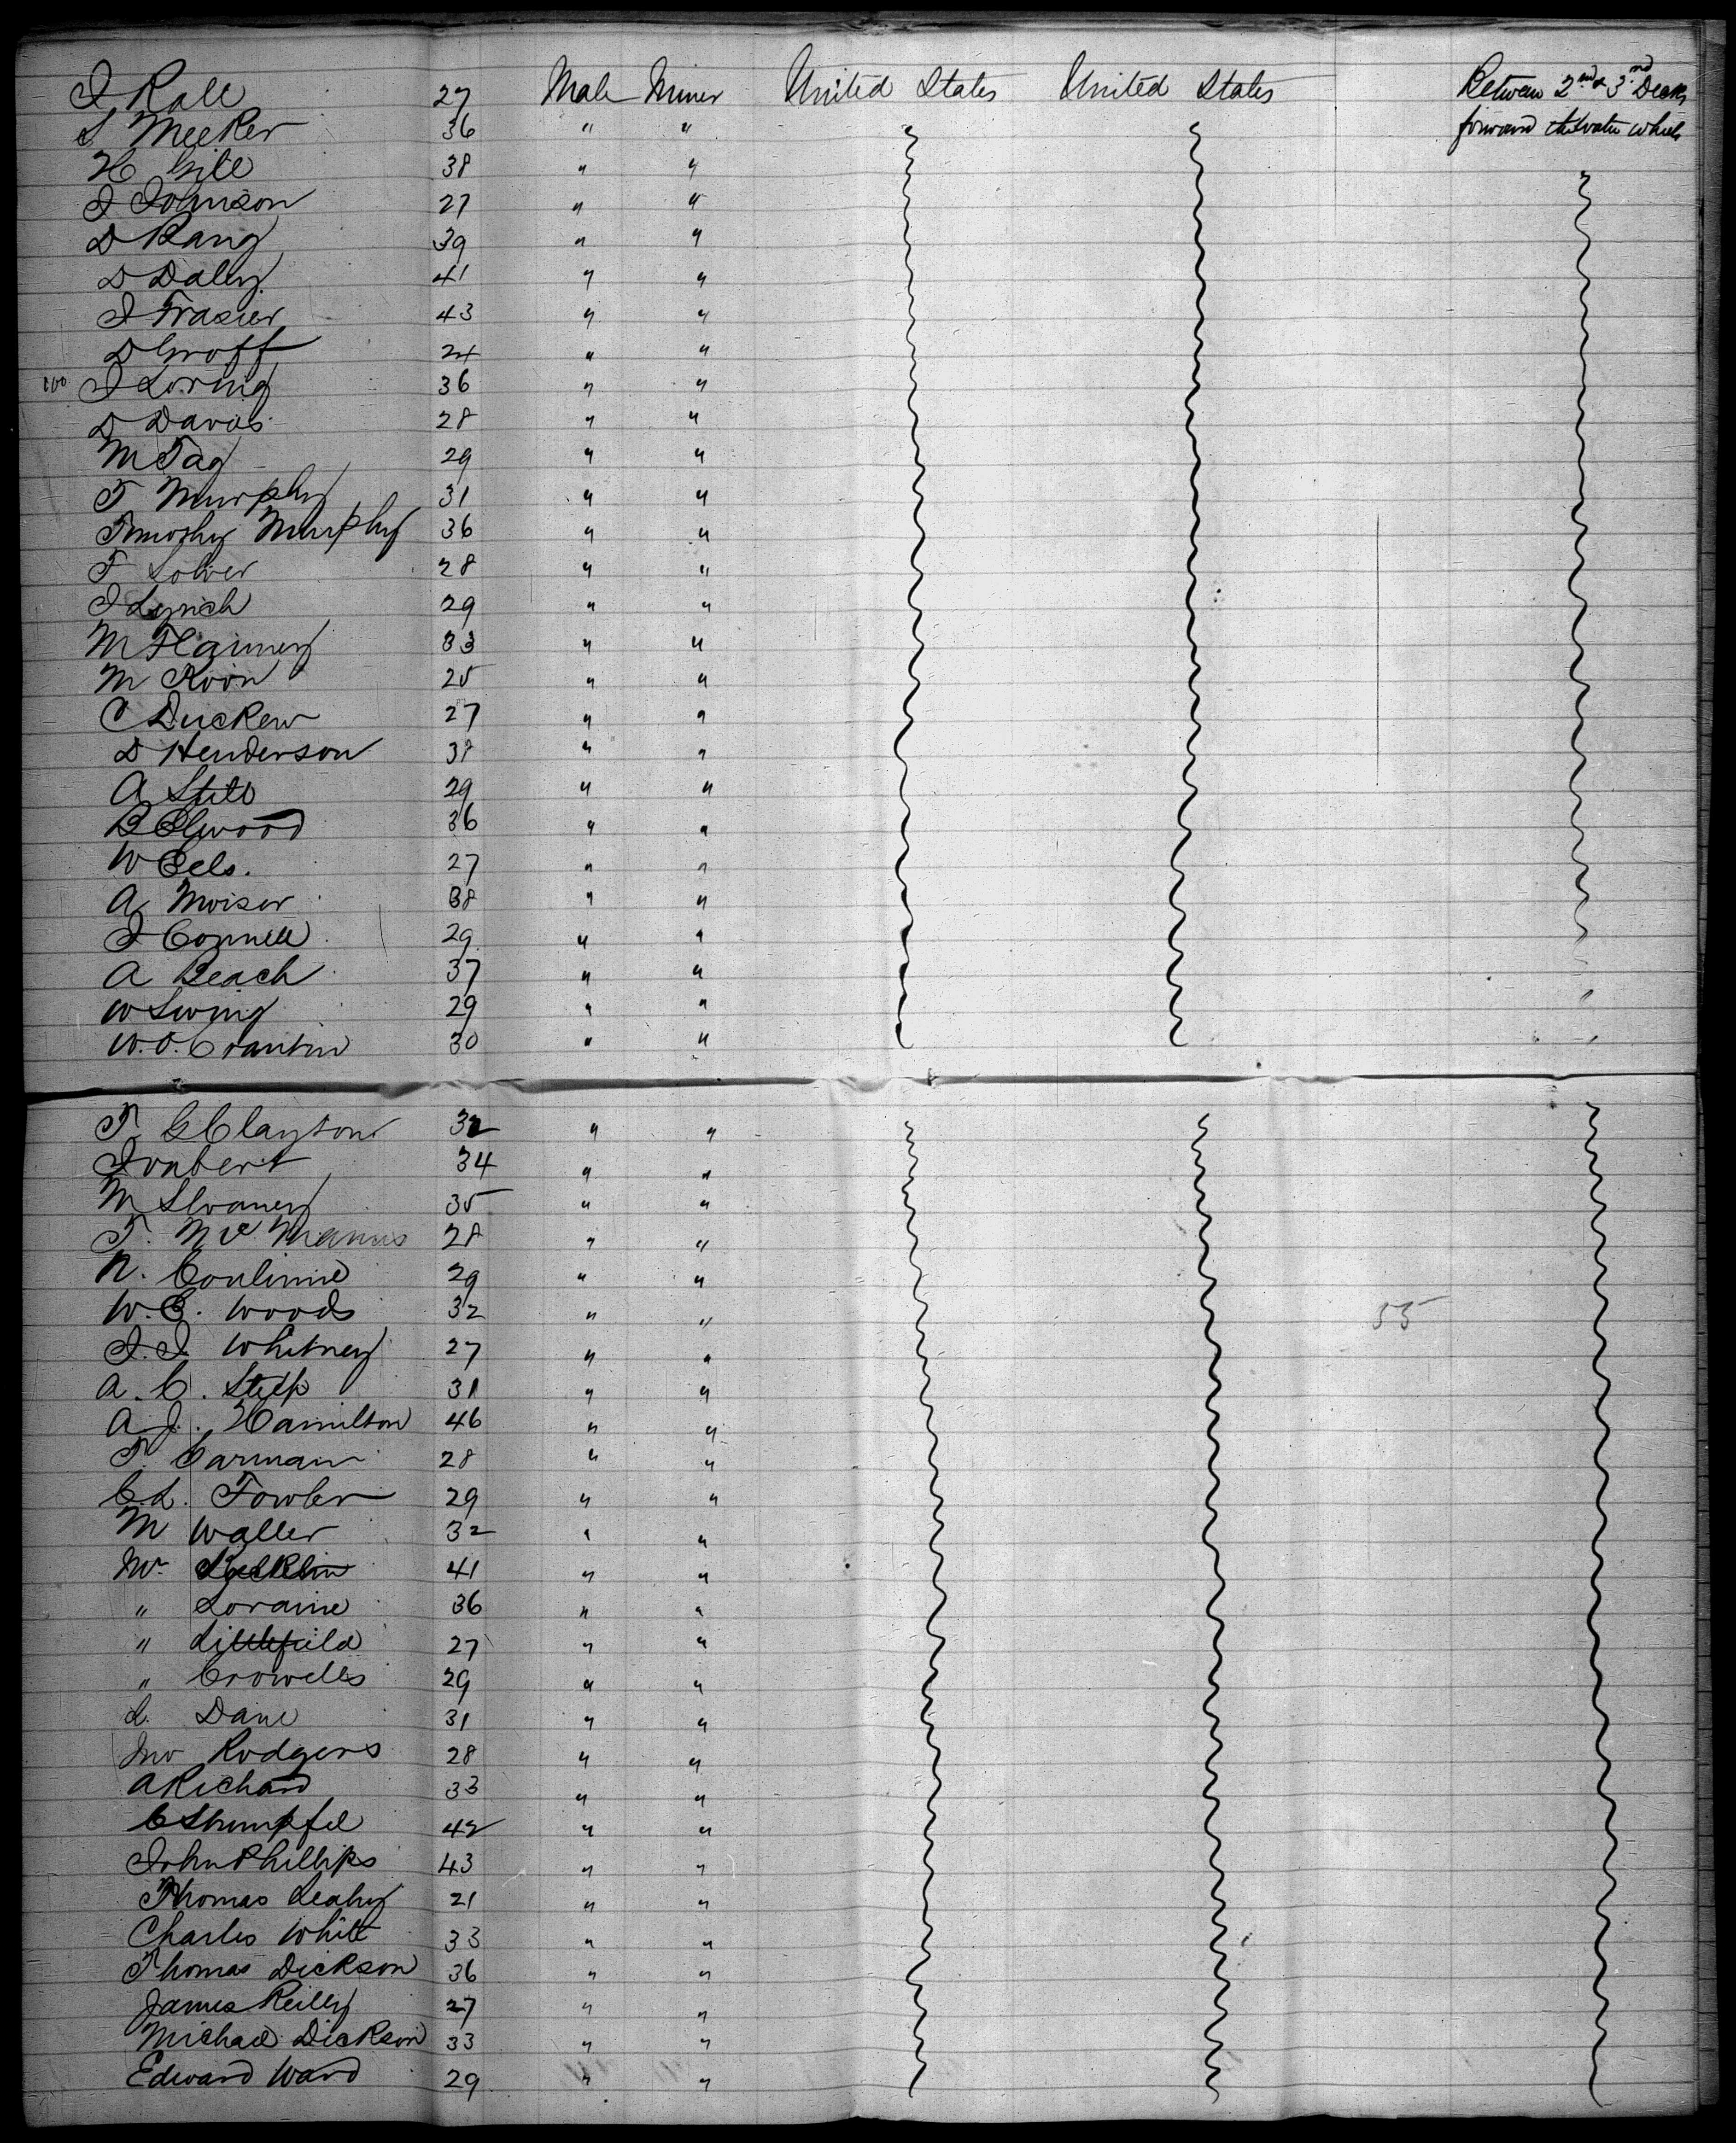 J Rall 27 Male Miner United States United States Between 2nd & 3rd Decks
S Meeker 36 " " forward the water wheels
H Gile 38 " "
J Johnson 27 " "
D Rang 39 " "
D Daley 41 " "
J Frasier 43 " "
D Groff 24 " "
100 J Loring 36 " "
D Davis 28 " "
M Tag 29 " "
T Murphy 31 " "
Timothy Murphy 36 " "
T Lower 28 " "
J Lynch 29 " "
M Flannery 33 " "
M Koon 25 " "
C Ducken 27 " "
D Henderson 38 " "
A Stilo 29 " "
B Elwood 36 " "
W Eels. 27 " "
A Moiser 38 " "
J Connell 29 " "
A Beach 37 " "
W Swing 29 " "
W.O. Cranton 30 " "
T. G Clayton 32 " "
Joubert 34 " "
M Sloaney 35 " "
T. Mc Manus 28 " "
N. Conlinne 29 " "
W.E. Woods 32 " " 55
J.J. Whitney 27 " "
A.C. Stilp 31 " "
A.J. Hamilton 46 " "
T. Carman 28 " "
C.L. Fowler 29 " "
M Waller 32 " "
Mr. 41 " "
" Loraine 36 " "
" Littlefield 27 " "
" Crowells 29 " "
L. Dane 31 " "
Jno Rodgers 28 " "
A Richard 33 " "
C Shumpfel 42 " "
John Phillips 43 " "
Thomas Leahy 21 " "
Charles White 33 " "
Thomas Dickson 36 " "
James Reilly 27 " "
Michael Dickson 33 " "
Edward Ward 29 " "